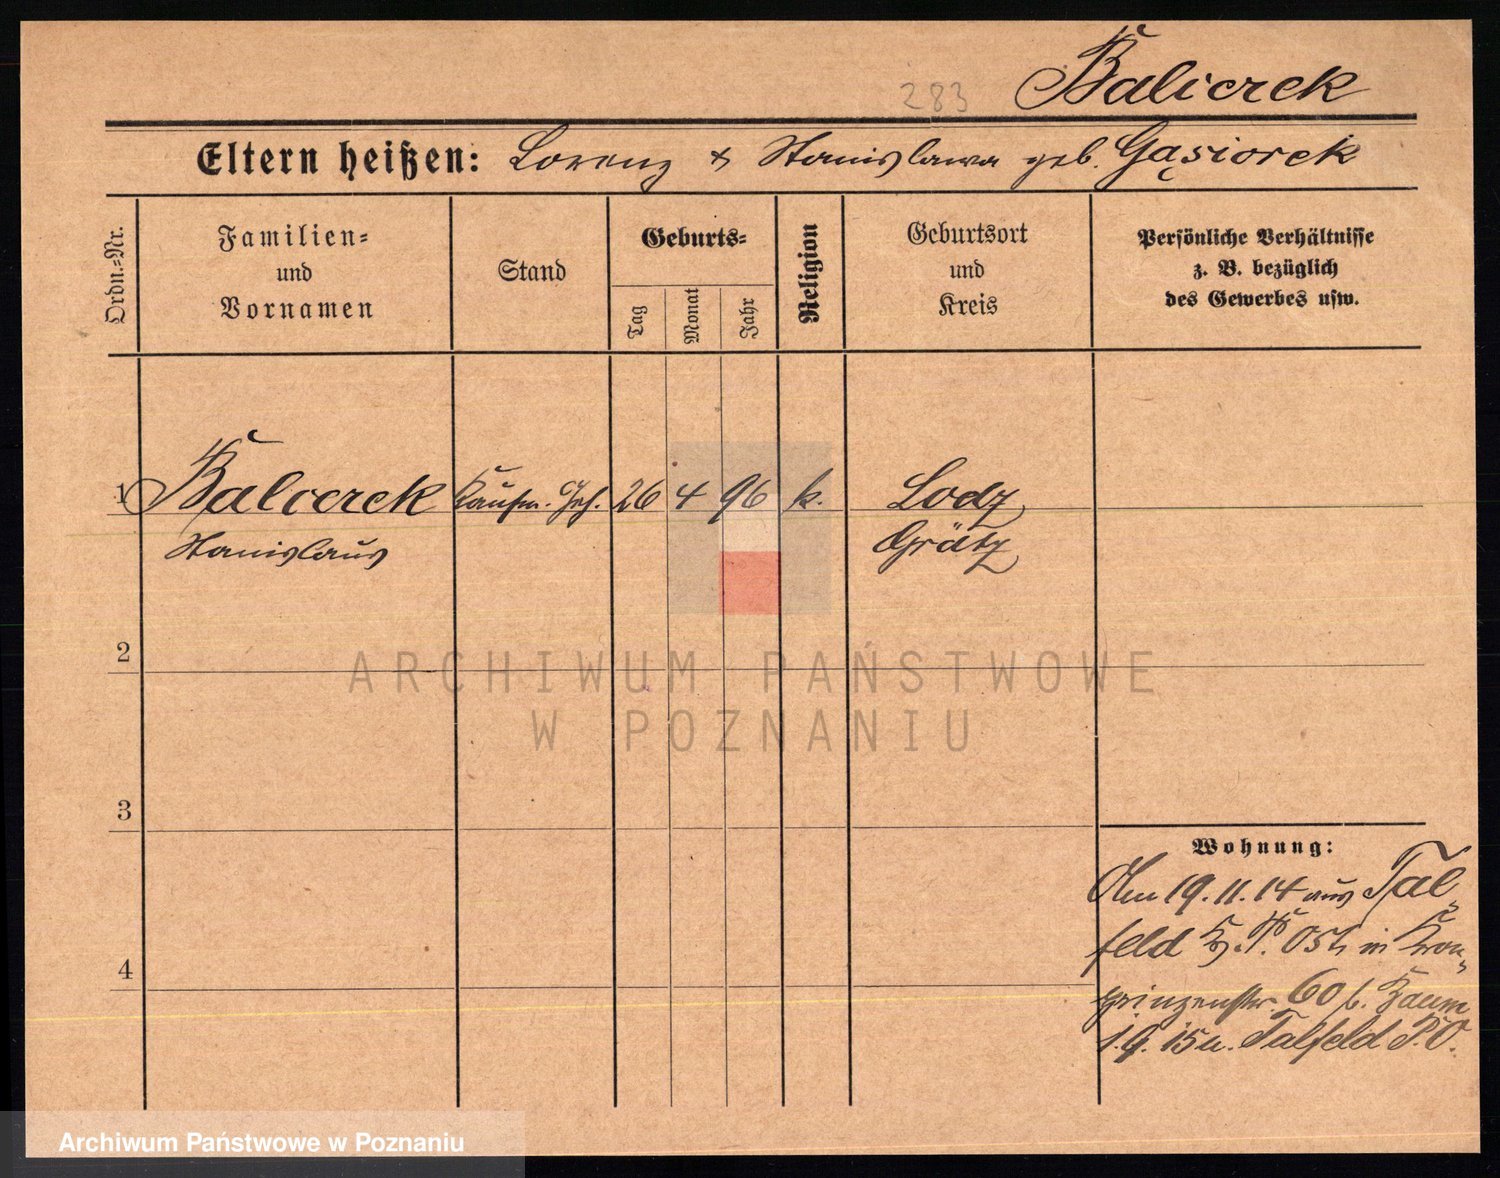 283
Balicrek
Eltern heißen: Lorenz & Stanislawa geb. Gąsiorek
Ordn.-Nr.
Familien-
und
Vornamen
Stand
Geburts-
Tag
Monat
Jahr
Religion
Geburtsort
und
Kreis
Persönliche Verhältnisse
z. B. bezüglich
des Gewerbes usw.
1 Balicrek Kaufm. Geh. 26 4 96 k. Lodz
Stanislaus Grätz
2
ARCHIWUM PAŃSTWOWE
W POZNANIU
3
Wohnung:
Am 19.11.14 aus Tal-
feld P. Ost, in Kron-
4
prinzenstr. 60 b. Baum
1.9.15 u. Talfeld P.O.
Archiwum Państwowe w Poznaniu